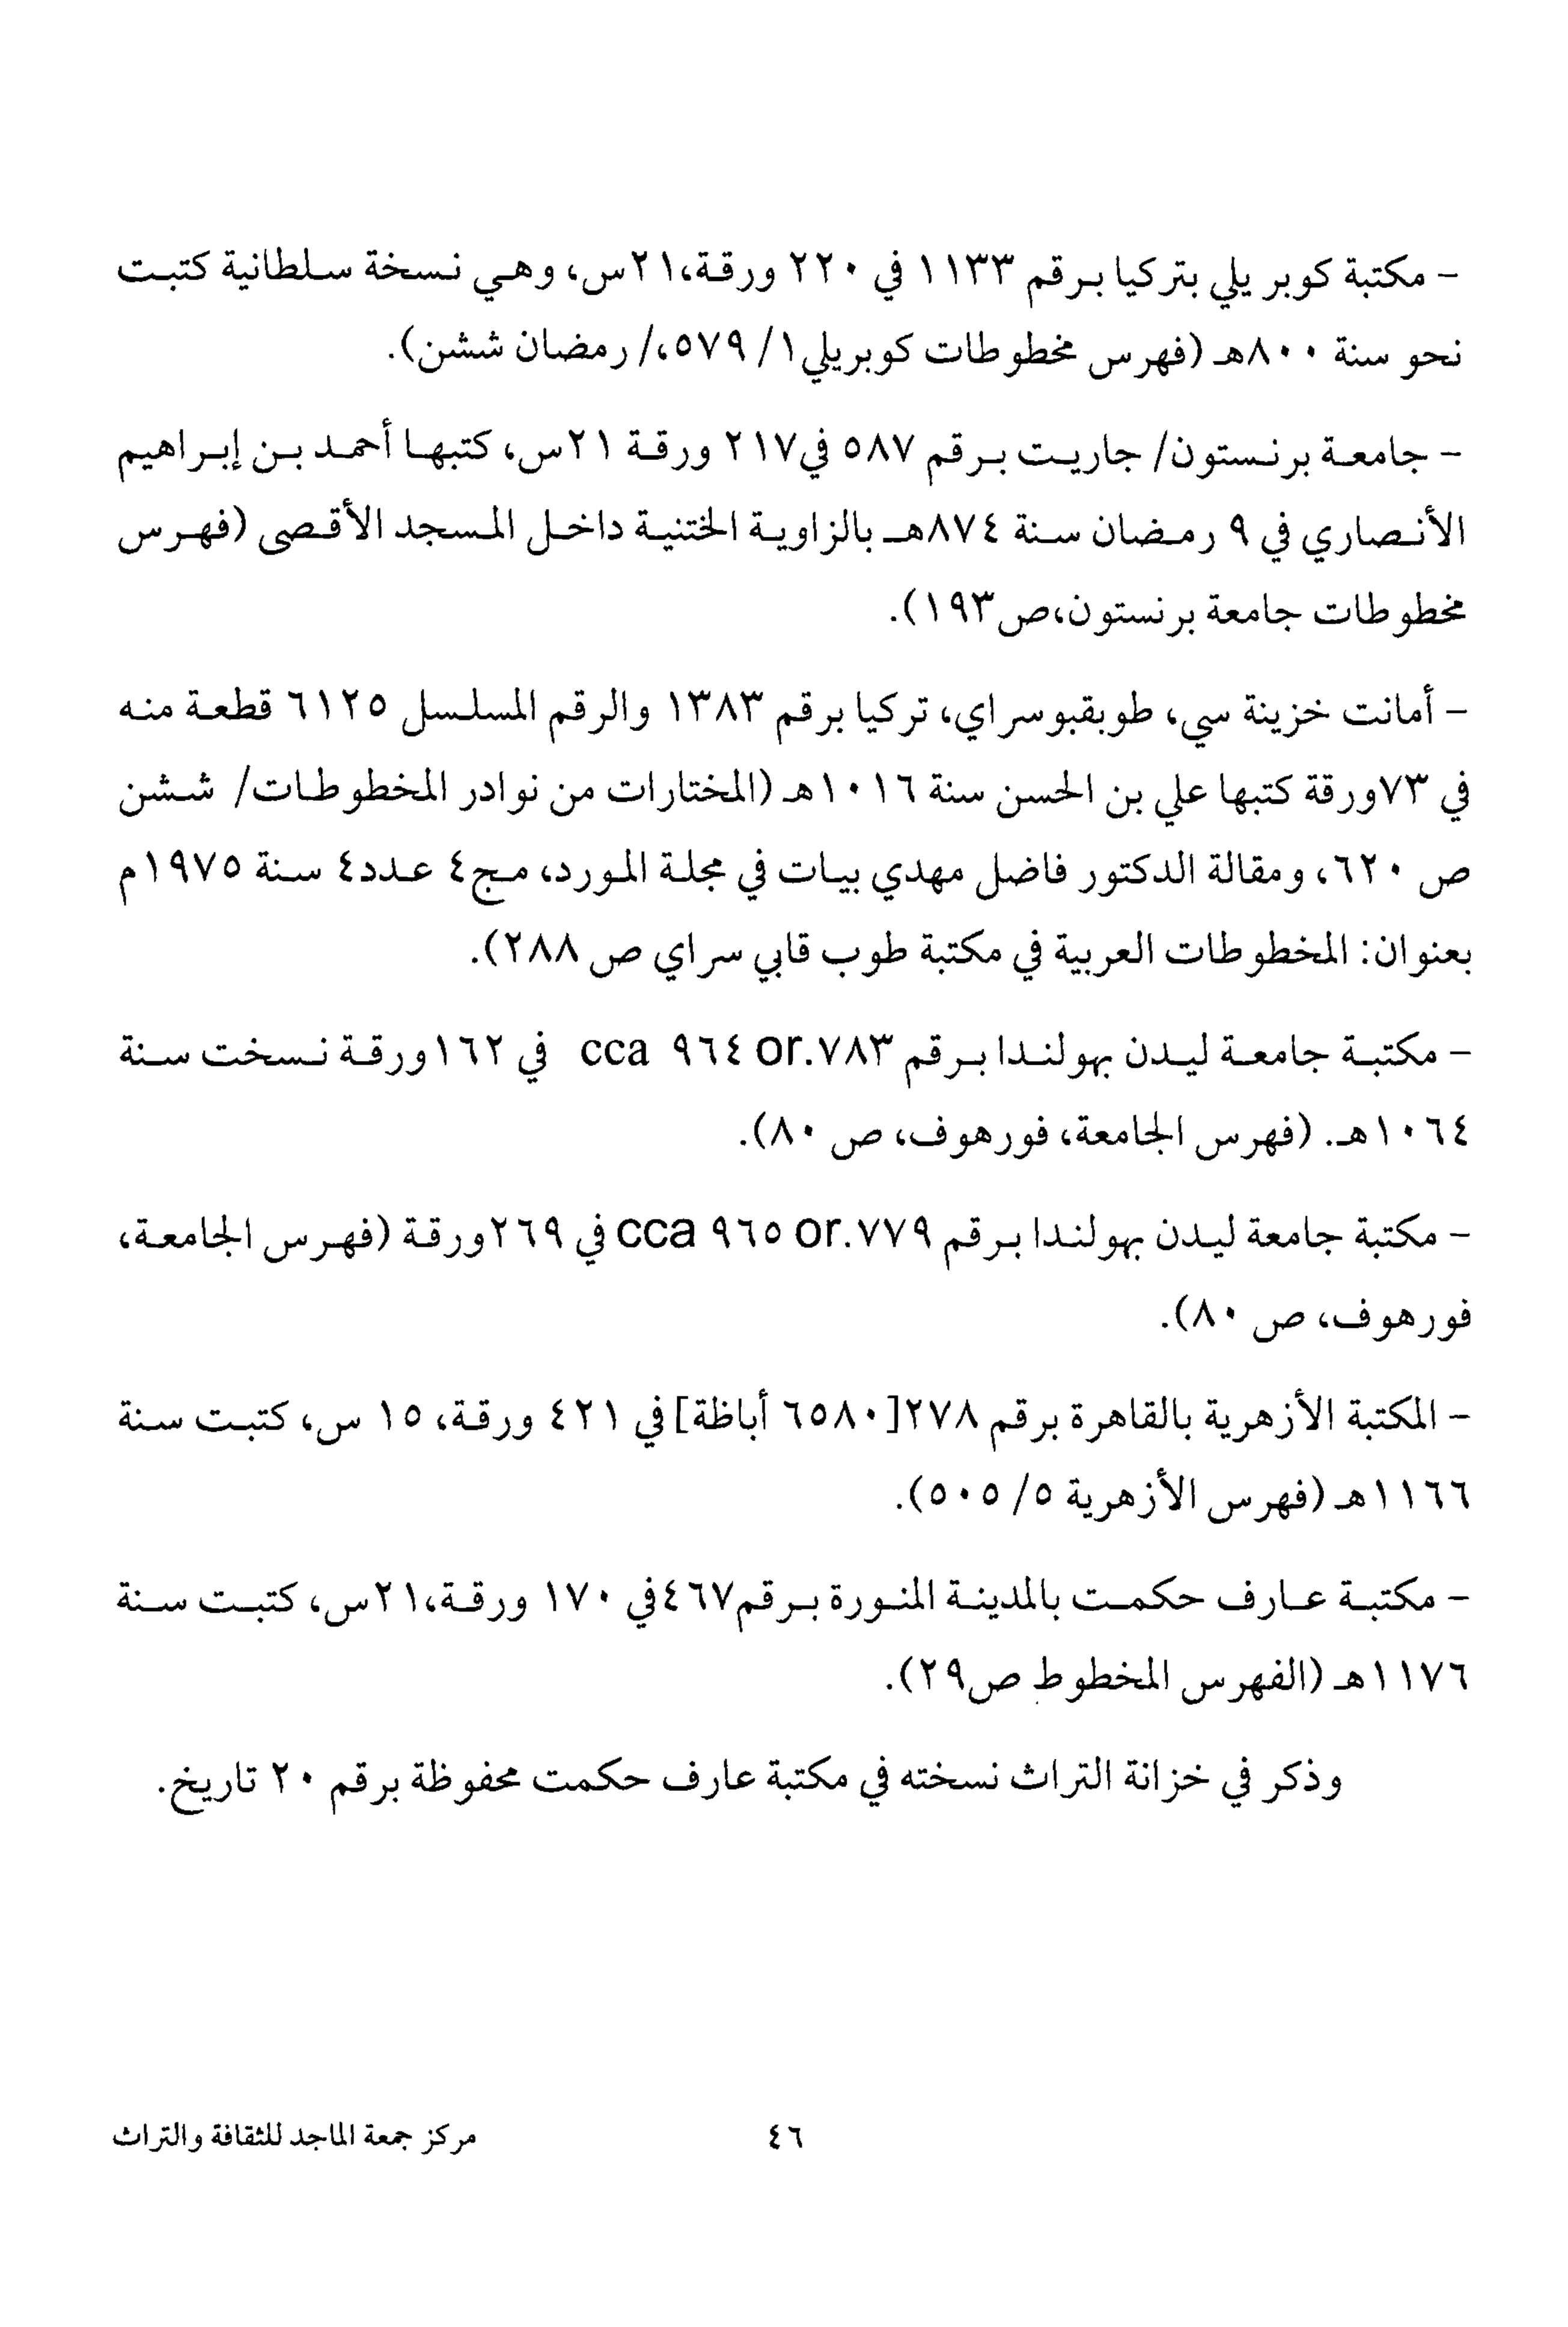 - مكتبة كوبريلي بتركيا برقم ١١٣٣ في ٢٢٠ ورقة،٢١س، وهي نسخة سلطانية كتبت
نحو سنة ٨٠٠هـ (فهرس مخطوطات كوبريلي١/ ٥٧٩،/ رمضان ششن).
- جامعة برنستون/ جاريت برقم ٥٨٧ في٢١٧ ورقة ٢١س، كتبها أحمد بن إبراهيم
الأنصاري في ٩ رمضان سنة ٨٧٤هـ بالزاوية الختنية داخل المسجد الأقصى (فهرس
مخطوطات جامعة برنستون،ص١٩٣).
- أمانت خزينة سي، طوبقبوسراي، تركيا برقم ١٣٨٣ والرقم المسلسل ٦١٢٥ قطعة منه
في ٧٣ورقة كتبها علي بن الحسن سنة ١٠١٦هـ (المختارات من نوادر المخطوطات/ ششن
ص ٦٢٠، ومقالة الدكتور فاضل مهدي بيات في مجلة المورد، مج٤ عدد٤ سنة ١٩٧٥م
بعنوان: المخطوطات العربية في مكتبة طوب قابي سراي ص ٢٨٨).
- مكتبة جامعة ليدن بهولندا برقم or.٧٨٣ ٩٦٤ cca في ١٦٢ورقة نسخت سنة
١٠٦٤هـ. (فهرس الجامعة، فورهوف، ص ٨٠).
- مكتبة جامعة ليدن بهولندا برقم or.٧٧٩ ٩٦٥ cca في ٢٦٩ورقة (فهرس الجامعة،
فورهوف، ص ٨٠).
- المكتبة الأزهرية بالقاهرة برقم ٢٧٨[٦٥٨٠ أباظة] في ٤٢١ ورقة، ١٥ س، كتبت سنة
١١٦٦هـ (فهرس الأزهرية ٥/ ٥٠٥).
- مكتبة عارف حكمت بالمدينة المنورة برقم٤٦٧في ١٧٠ ورقة،٢١س، كتبت سنة
١١٧٦هـ (الفهرس المخطوط ص٢٩).
وذكر في خزانة التراث نسخته في مكتبة عارف حكمت محفوظة برقم ٢٠ تاريخ.
٤٦
مركز جمعة الماجد للثقافة والتراث